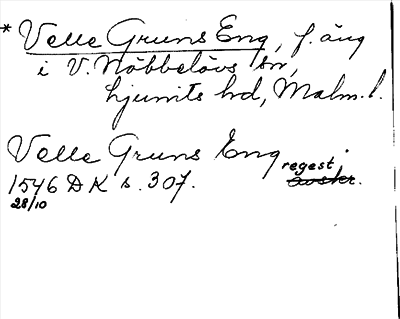 * Velle Gruns Eng, f. äng
i V. Nöbbelövs sn,
Ljunits hd, Malm. l.
Velle Gruns Eng regest.
1546 DK s. 307. avskr.
28/10